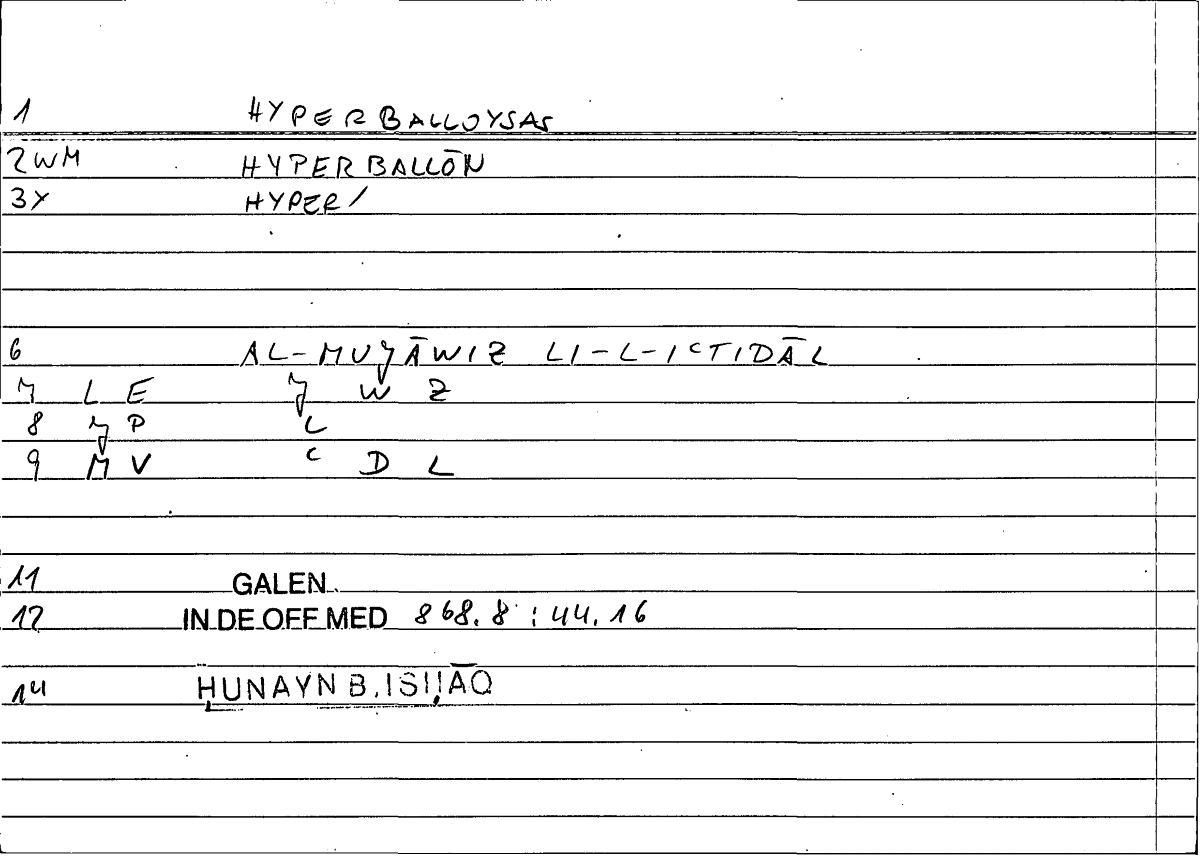 1 HYPERBALLOYSAS
2WM HYPERBALLŌN
3X HYPER/
6 AL-MUǦĀWIZ LI-L-IʿTIDĀL
M L E Ǧ W Z
8 Ǧ P L
9 M V ʿ D L
11 GALEN
12 IN DE OFF MED 868.8 : 44.16
14 ḤUNAYN B. ISḤĀQ